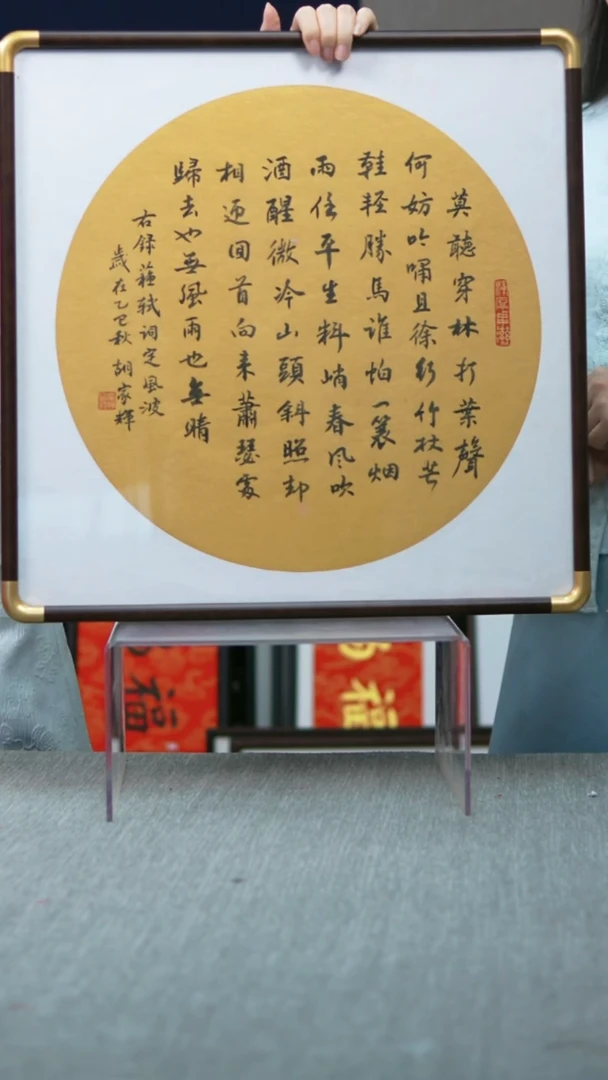 莫聽穿林打葉聲
何妨吟嘯且徐行竹杖芒
鞋輕勝馬誰怕一蓑烟
雨任平生料峭春风吹
酒醒微冷山頭斜照却
相迎回首向来蕭瑟處
歸去也無風雨也無晴
右録蘇軾詞定風波
歲在乙巳秋 胡家輝
福
福